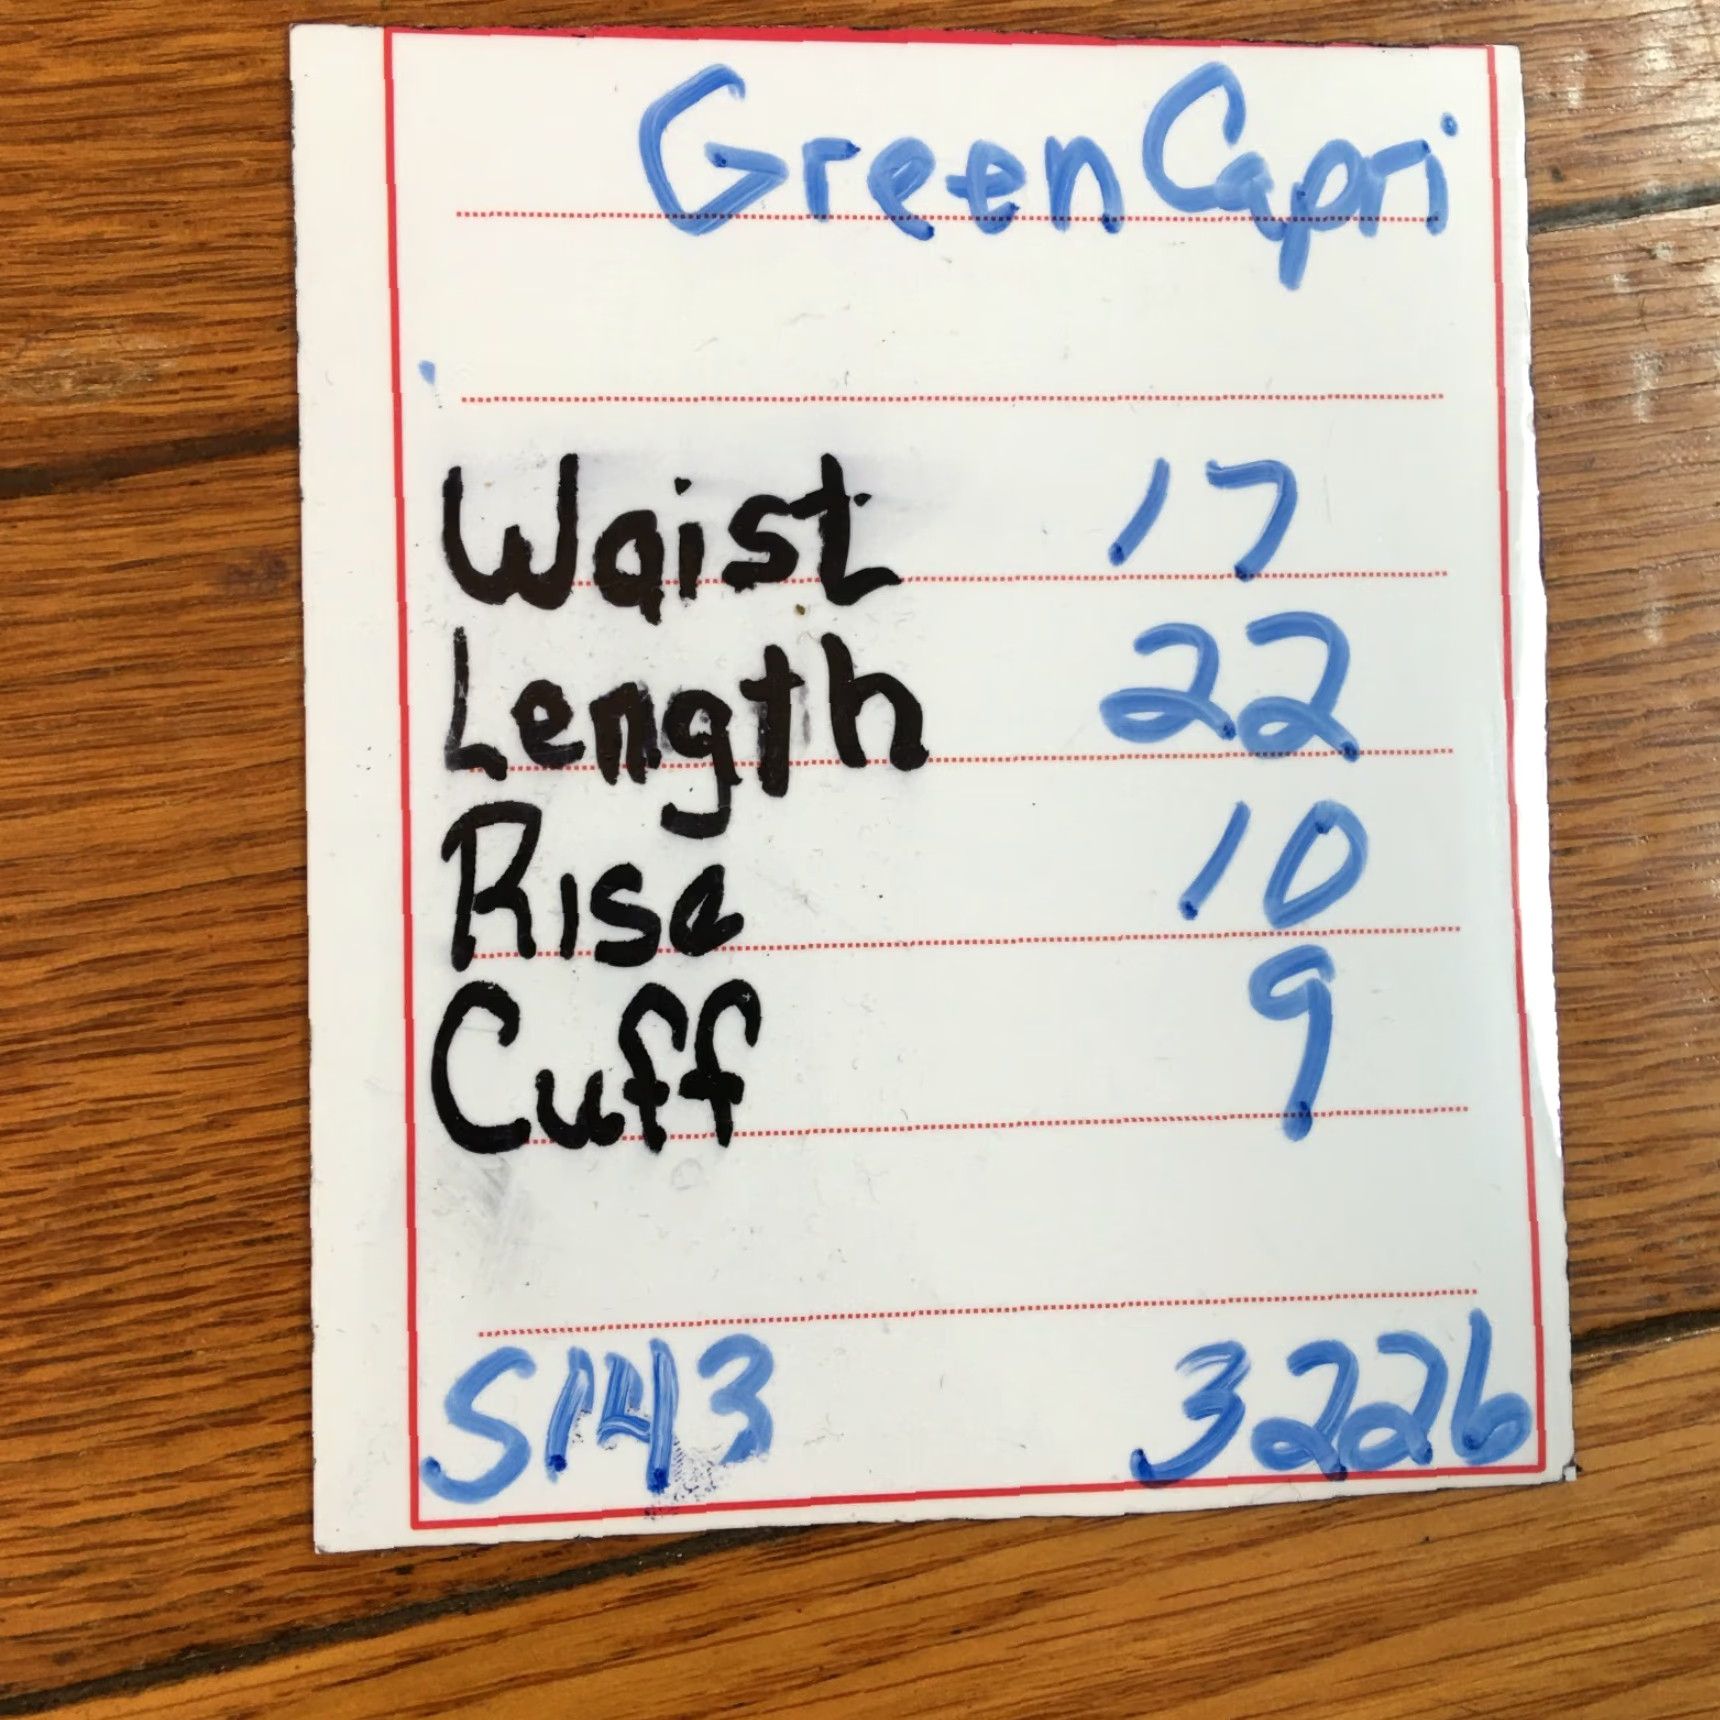 Green Capri
Waist 17
Length 22
Rise 10
Cuff 9
S143 3226